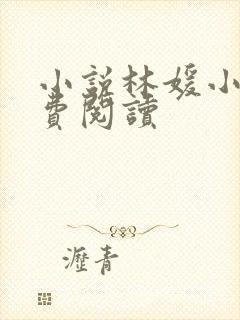 小說林媛小
費閱讀
瀝青